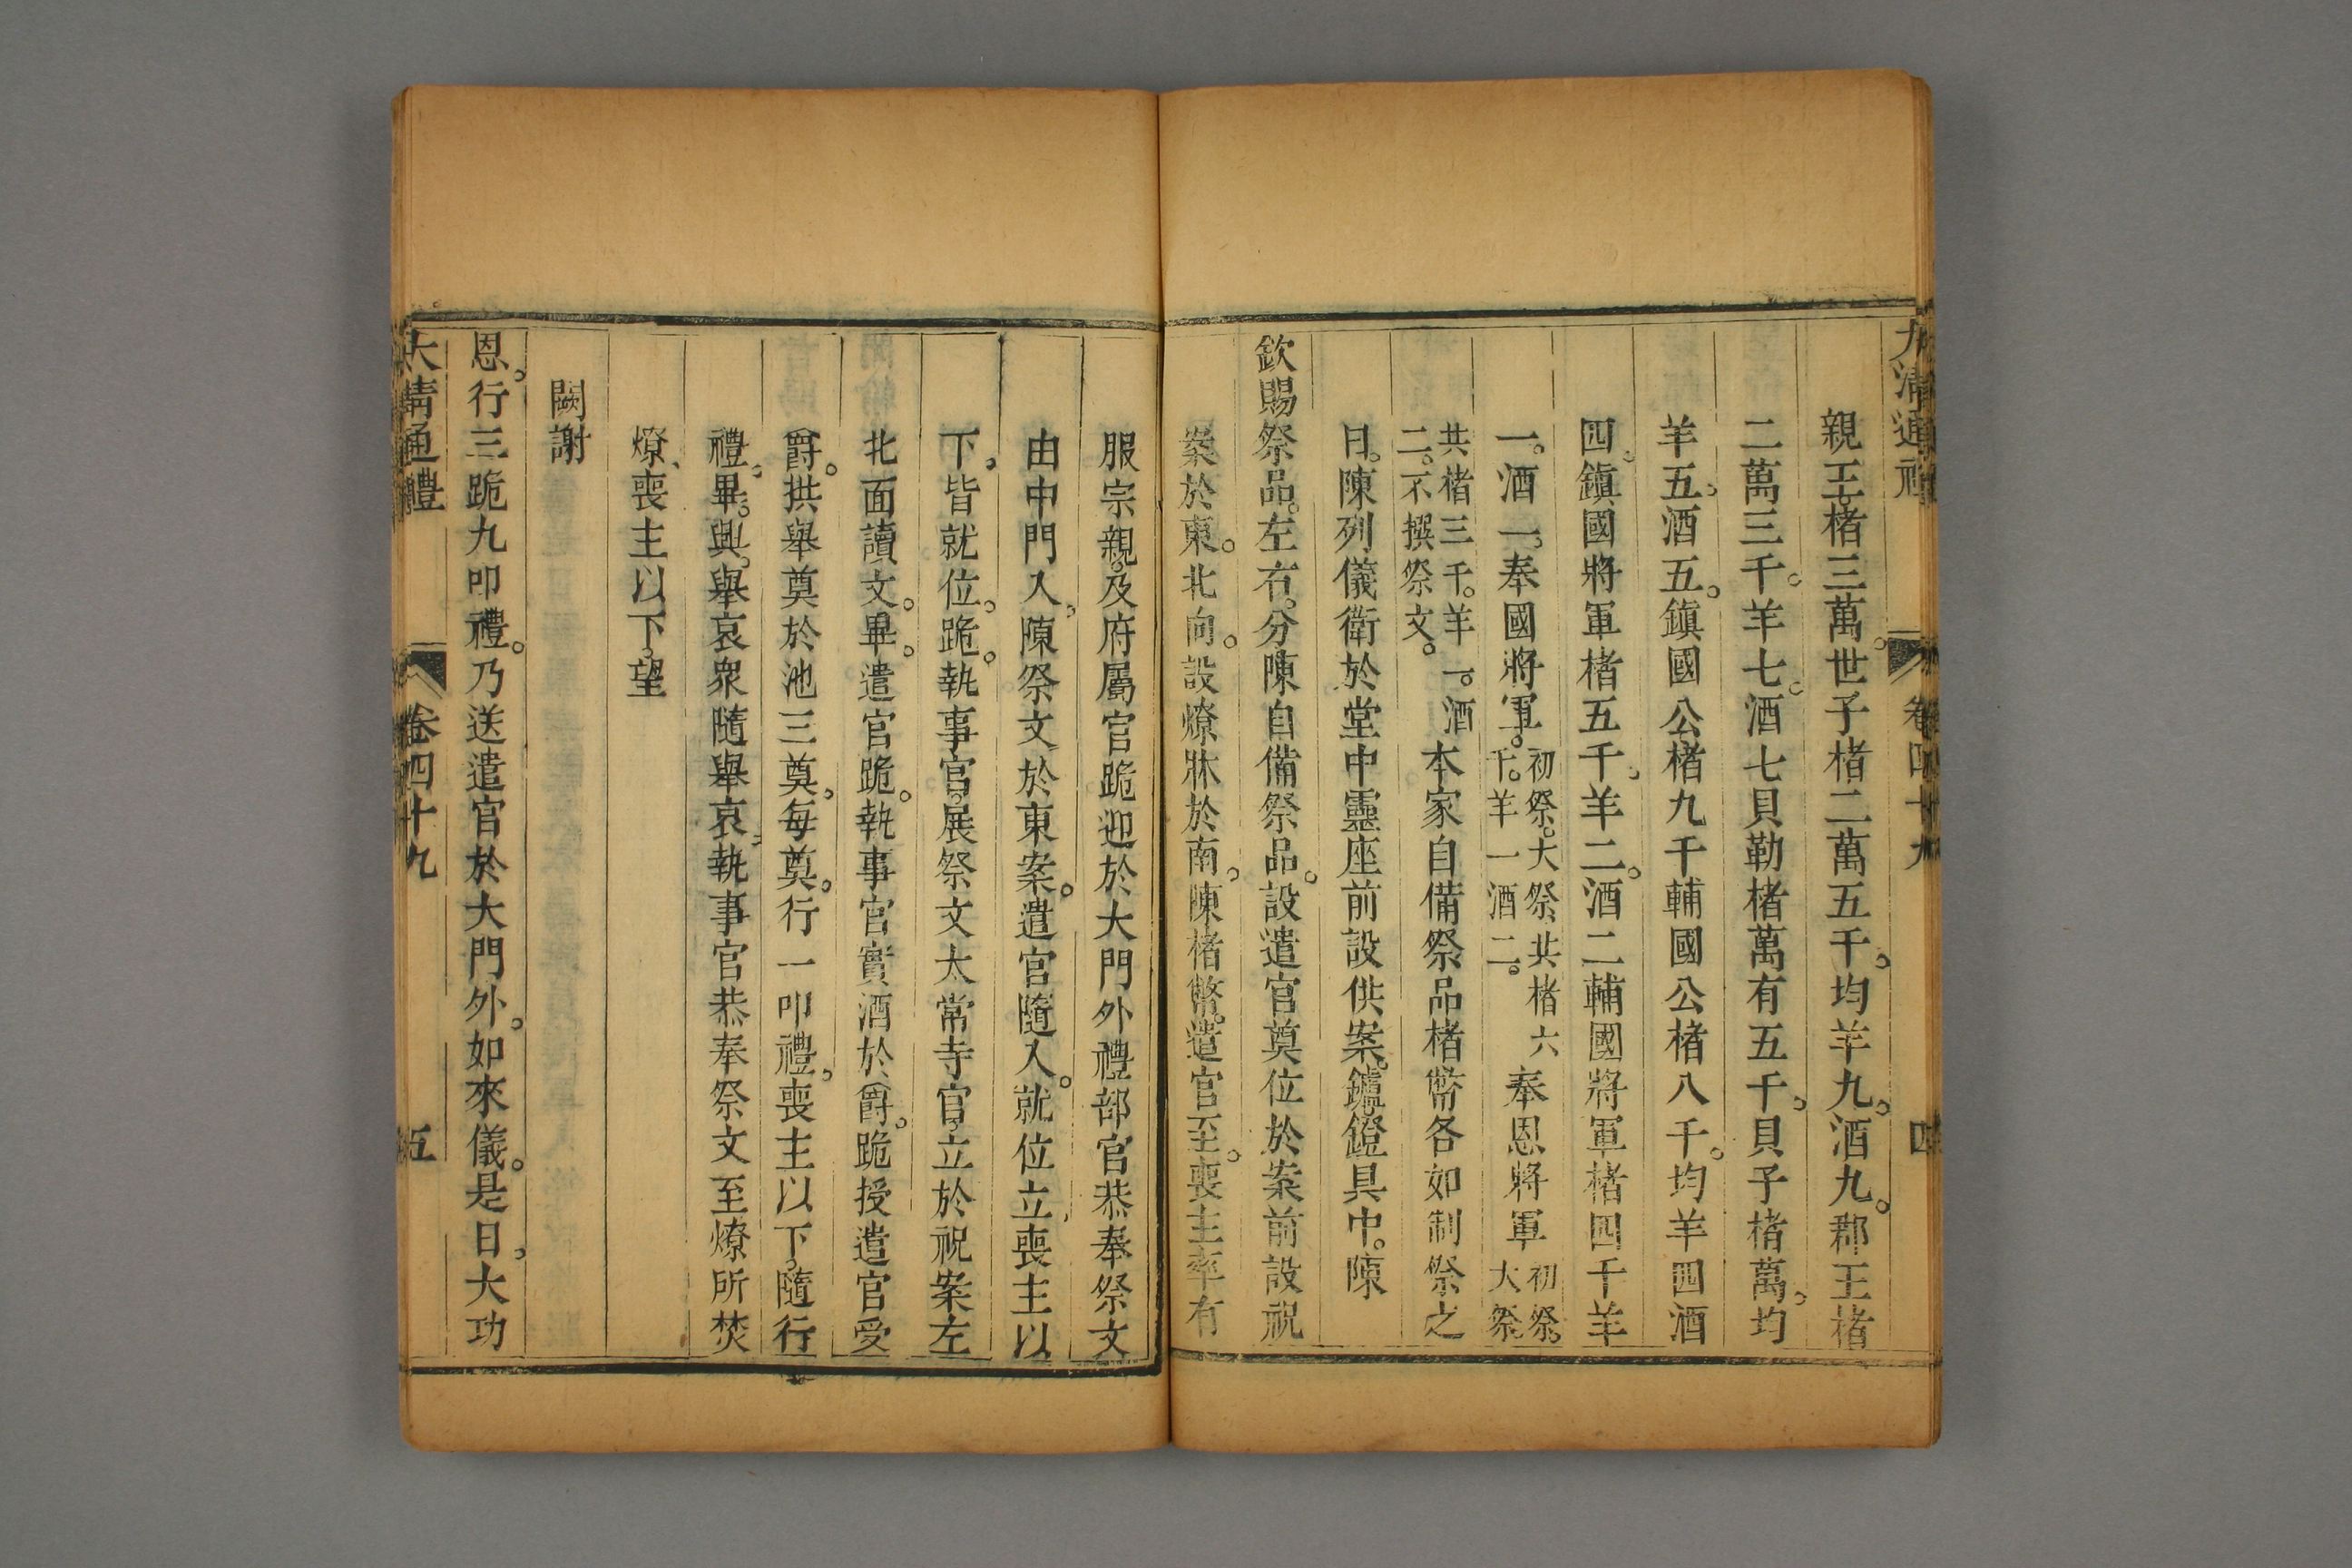 大清通禮 卷四十九 四
親王。楮三萬。世子楮二萬五千。均羊九。酒九。郡王楮
二萬三千。羊七。酒七貝勒楮萬有五千。貝子楮萬。均
羊五。酒五。鎮國公楮九千輔國公楮八千。均羊四酒
四。鎮國將軍楮五千。羊二。酒二輔國將軍楮四千羊
一。酒一。奉國將軍。初祭。大祭。共楮六千。羊一酒二。奉恩將軍初祭。大祭。
共楮三千。羊一。酒二。不撰祭文。本家自備祭品楮幣各如制祭之
日。陳列儀衛於堂中靈座前設供案。鑪鐙具中。陳
欽賜祭品。左右。分陳自備祭品。設遣官奠位於案前設祝
案於東。北向。設燎牀於南。陳楮幣。遣官至。喪主率有
服宗親。及府屬官跪迎於大門外禮部官恭奉祭文
由中門入。陳祭文於東案。遣官隨入。就位立。喪主以
下。皆就位。跪。執事官。展祭文太常寺官。立於祝案左
北面讀文。畢。遣官跪。執事官實酒於爵。跪授遣官受
爵。拱舉奠於池三奠。每奠。行一叩禮。喪主以下。隨行
禮。畢。興。舉哀眾隨舉哀。執事官恭奉祭文至燎所焚
燎。喪主以下。望
闕謝
恩。行三跪九叩禮。乃送遣官於大門外。如來儀。是日。大功
大清通禮 卷四十九 五